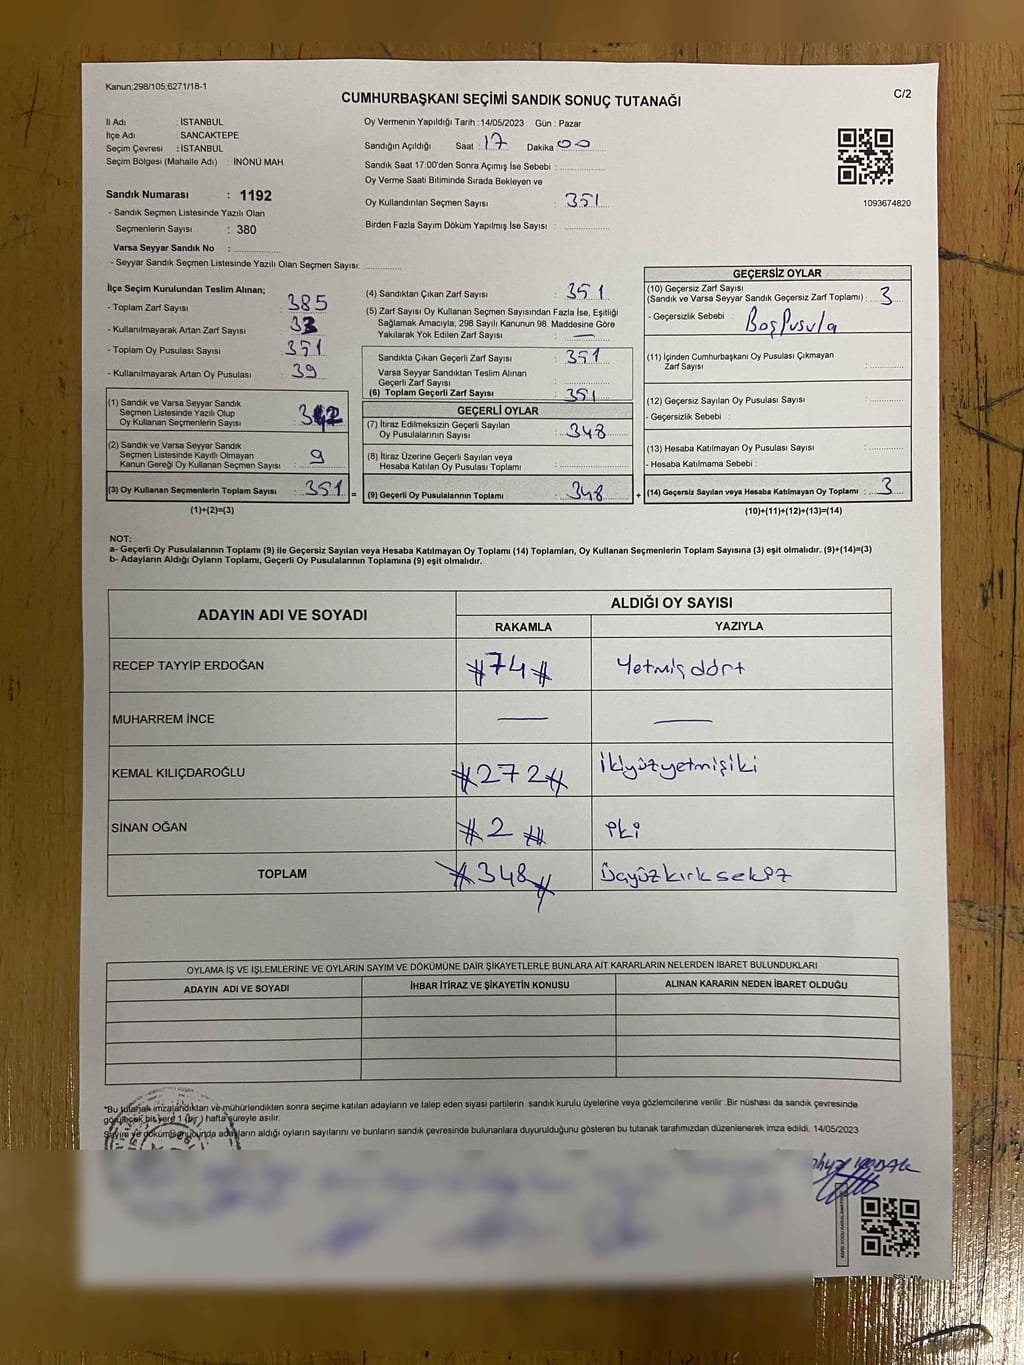 Kanun;298/105;6271/18-1
CUMHURBAŞKANI SEÇİMİ SANDIK SONUÇ TUTANAĞI
C/2
İl Adı : İSTANBUL
İlçe Adı : SANCAKTEPE
Seçim Çevresi : İSTANBUL
Seçim Bölgesi (Mahalle Adı) : İNÖNÜ MAH.
Sandık Numarası : 1192
- Sandık Seçmen Listesinde Yazılı Olan
Seçmenlerin Sayısı : 380
Varsa Seyyar Sandık No :
- Seyyar Sandık Seçmen Listesinde Yazılı Olan Seçmen Sayısı:
Oy Vermenin Yapıldığı Tarih :14/05/2023 Gün : Pazar
Sandığın Açıldığı Saat : 17 Dakika 00
Sandık Saat 17:00'den Sonra Açımış İse Sebebi :
Oy Verme Saati Bitiminde Sırada Bekleyen ve
Oy Kullandırılan Seçmen Sayısı : 351
Birden Fazla Sayım Döküm Yapılmış İse Sayısı :
1093674820
İlçe Seçim Kurulundan Teslim Alınan;
- Toplam Zarf Sayısı : 385
- Kullanılmayarak Artan Zarf Sayısı : 33
- Toplam Oy Pusulası Sayısı : 351
- Kullanılmayarak Artan Oy Pusulası : 39
(1) Sandık ve Varsa Seyyar Sandık
Seçmen Listesinde Yazılı Olup
Oy Kullanan Seçmenlerin Sayısı : 342
(2) Sandık ve Varsa Seyyar Sandık
Seçmen Listesinde Kayıtlı Olmayan
Kanun Gereği Oy Kullanan Seçmen Sayısı : 9
(3) Oy Kullanan Seçmenlerin Toplam Sayısı : 351
(1)+(2)=(3)
(4) Sandıktan Çıkan Zarf Sayısı : 351
(5) Zarf Sayısı Oy Kullanan Seçmen Sayısından Fazla İse, Eşitliği
Sağlamak Amacıyla; 298 Sayılı Kanunun 98. Maddesine Göre
Yakılarak Yok Edilen Zarf Sayısı : —
Sandıkta Çıkan Geçerli Zarf Sayısı : 351
Varsa Seyyar Sandıktan Teslim Alınan
Geçerli Zarf Sayısı :
(6) Toplam Geçerli Zarf Sayısı : 351
GEÇERLİ OYLAR
(7) İtiraz Edilmeksizin Geçerli Sayılan
Oy Pusulalarının Sayısı : 348
(8) İtiraz Üzerine Geçerli Sayılan veya
Hesaba Katılan Oy Pusulası Toplamı :
= (9) Geçerli Oy Pusulalarının Toplamı : 348 +
GEÇERSİZ OYLAR
(10) Geçersiz Zarf Sayısı
(Sandık ve Varsa Seyyar Sandık Geçersiz Zarf Toplamı) : 3
- Geçersizlik Sebebi : Boş Pusula
(11) İçinden Cumhurbaşkanı Oy Pusulası Çıkmayan
Zarf Sayısı :
(12) Geçersiz Sayılan Oy Pusulası Sayısı :
- Geçersizlik Sebebi :
(13) Hesaba Katılmayan Oy Pusulası Sayısı :
- Hesaba Katılmama Sebebi :
(14) Geçersiz Sayılan veya Hesaba Katılmayan Oy Toplamı : 3
(10)+(11)+(12)+(13)=(14)
NOT:
a- Geçerli Oy Pusulalarının Toplamı (9) ile Geçersiz Sayılan veya Hesaba Katılmayan Oy Toplamı (14) Toplamları, Oy Kullanan Seçmenlerin Toplam Sayısına (3) eşit olmalıdır. (9)+(14)=(3)
b- Adayların Aldığı Oyların Toplamı, Geçerli Oy Pusulalarının Toplamına (9) eşit olmalıdır.
ADAYIN ADI VE SOYADI ALDIĞI OY SAYISI
RAKAMLA YAZIYLA
RECEP TAYYİP ERDOĞAN #74# Yetmişdört
MUHARREM İNCE — —
KEMAL KILIÇDAROĞLU #272# ikiyüzyetmişiki
SİNAN OĞAN #2# iki
TOPLAM #348# Üçyüzkırksekiz
OYLAMA İŞ VE İŞLEMLERİNE VE OYLARIN SAYIM VE DÖKÜMÜNE DAİR ŞİKAYETLERLE BUNLARA AİT KARARLARIN NELERDEN İBARET BULUNDUKLARI
ADAYIN ADI VE SOYADI İHBAR İTİRAZ VE ŞİKAYETİN KONUSU ALINAN KARARIN NEDEN İBARET OLDUĞU
*Bu tutanak imzalandıktan ve mühürlendikten sonra seçime katılan adayların ve talep eden siyasi partilerin sandık kurulu üyelerine veya gözlemcilerine verilir .Bir nüshası da sandık çevresinde
görülecek bir yere 1 (bir ) hafta süreyle asılır.
Sayım ve dökümü sonucunda adayların aldığı oyların sayılarını ve bunların sandık çevresinde bulunanlara duyurulduğunu gösteren bu tutanak tarafımızdan düzenlenerek imza edildi. 14/05/2023